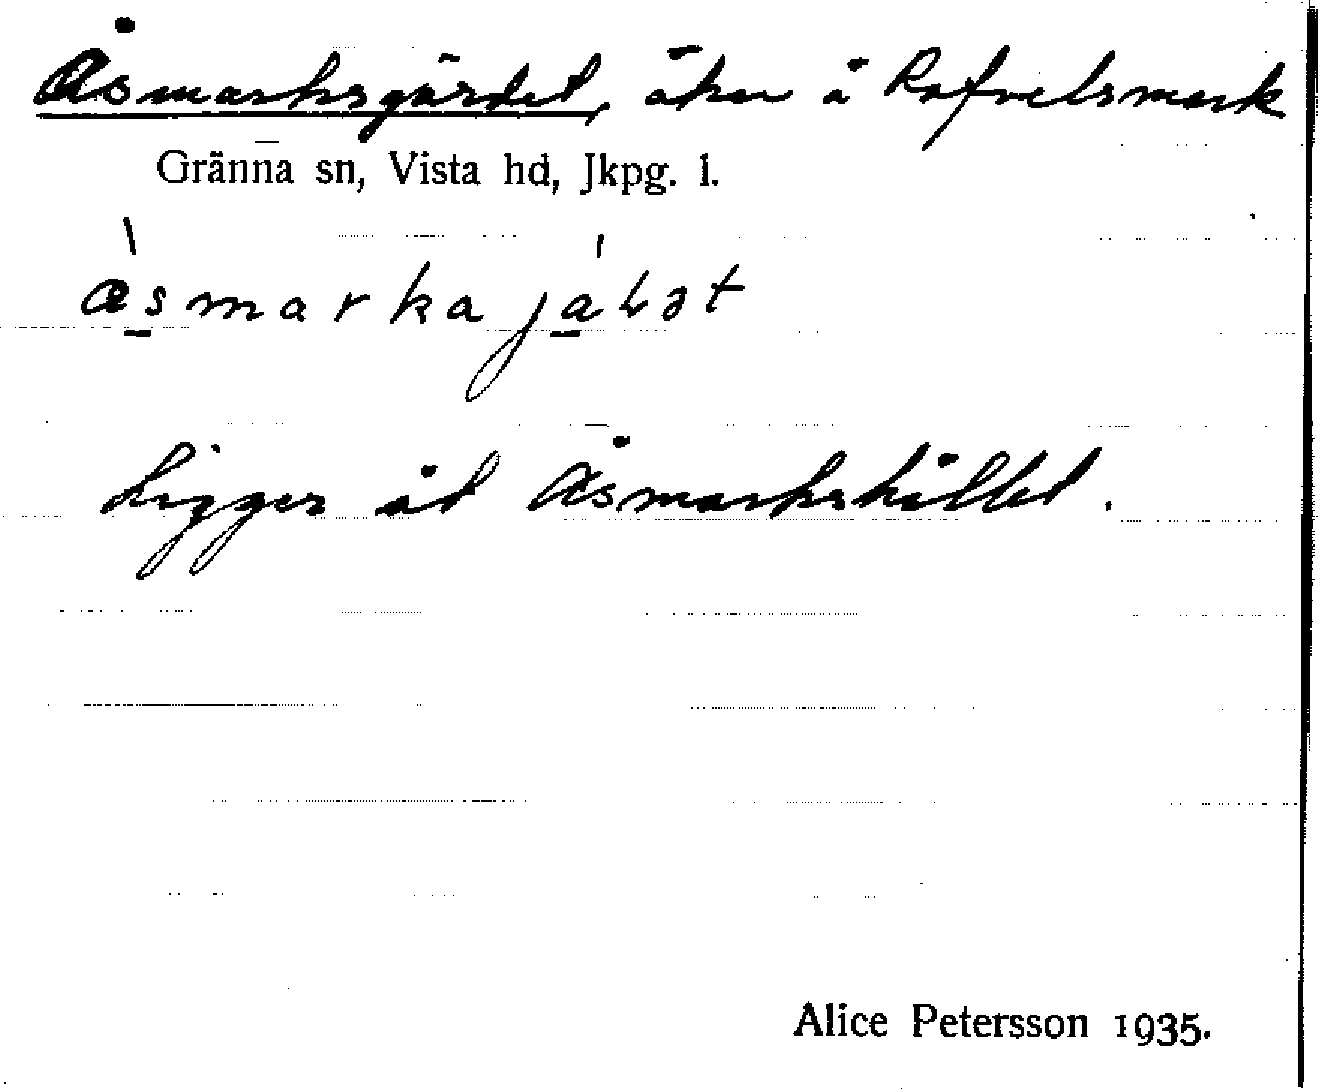 Åsmarksgärdet, åker å Rafvelsmark
Gränna sn, Vista hd, Jkpg. l.
Ligger åt Åsmarkshållet.
Alice Petersson 1935.